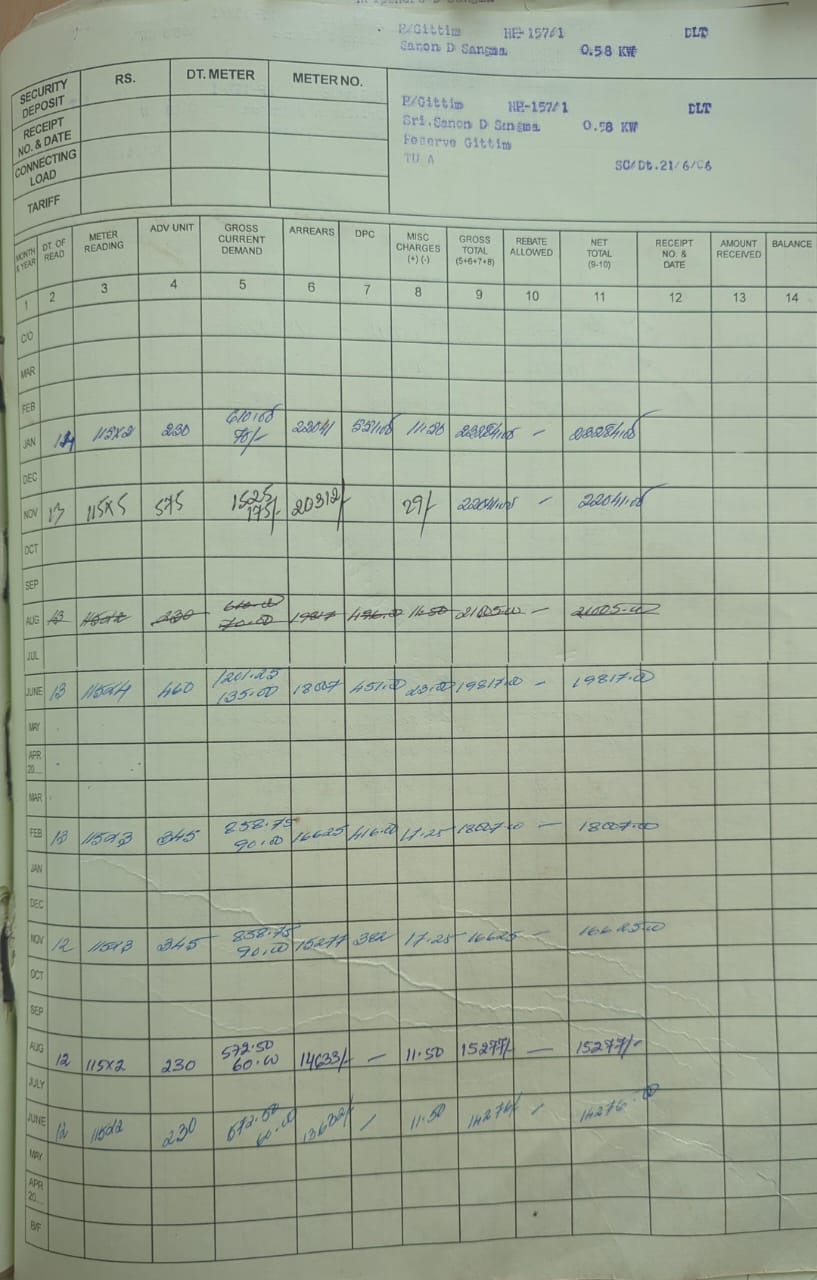 P/Gittim HE-157/1 DLT
Sanon D Sangma 0.58 KW
SECURITY DEPOSIT RS. DT. METER METER NO.
RECEIPT NO. & DATE
CONNECTING LOAD
TARIFF
P/Gittim HE-157/1 DLT
Sri.Sanon D Sangma 0.58 KW
Reserve Gittim
TU A
SC/Dt.21/6/06
MONTH & YEAR DT. OF READ METER READING ADV UNIT GROSS CURRENT DEMAND ARREARS DPC MISC CHARGES (+) (-) GROSS TOTAL (5+6+7+8) REBATE ALLOWED NET TOTAL (9-10) RECEIPT NO. & DATE AMOUNT RECEIVED BALANCE
1 2 3 4 5 6 7 8 9 10 11 12 13 14
C/O
MAR
FEB
JAN 115x2 230 610.00 70/- 22041 551.00 11.50 23284.00 - 23284.00
DEC
NOV 13 115x5 575 1525 175/- 20312/- 29/- 22041.00 - 22041.00
OCT
SEP
AUG 13 115x2 230 610.00 70.00 19817 496.00 16.50 21005.00 - 21005.00
JUL
JUNE 13 115x4 460 1201.25 135.00 18007 451.00 23.00 19817.00 - 19817.00
MAY
APR 20....
MAR
FEB 13 115x3 345 858.75 90.00 16625 416.00 17.25 18007.00 - 18007.00
JAN
DEC
NOV 12 115x3 345 858.75 90.00 15277 382 17.25 16625 - 16625.00
OCT
SEP
AUG 12 115x2 230 572.50 60.00 14633/- - 11.50 15277/- - 15277/-
JULY
JUNE 12 115x2 230 572.50 60.00 13632/- - 11.50 14276/- - 14276.00
MAY
APR 20....
B/F